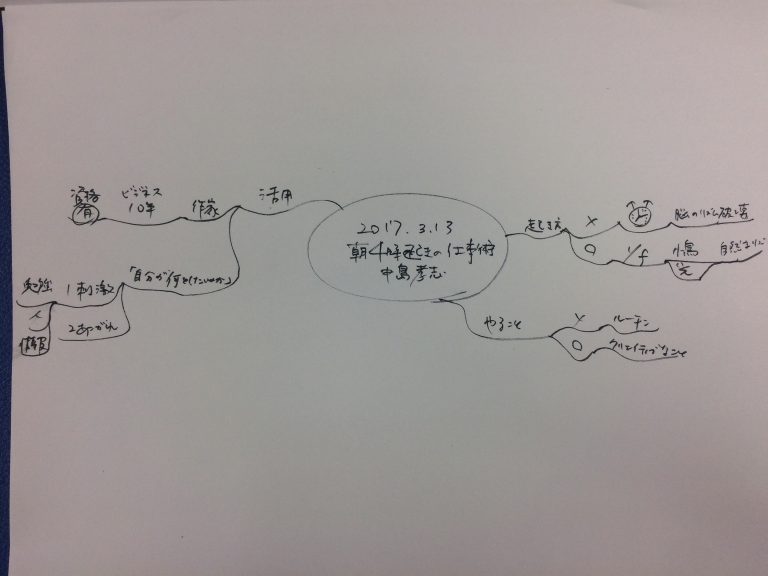 2017.3.13
朝4時起きの仕事術
中島孝志
起き方
×
脳のリズム破壊
○
1/f
小鳥
光
自然音など
やること
×
ルーチン
○
クリエイティブなこと
活用
作家
ビジネス
10年
資格
有
「自分が何をしたいのか」
1刺激
勉強
人
情報
2あこがれ